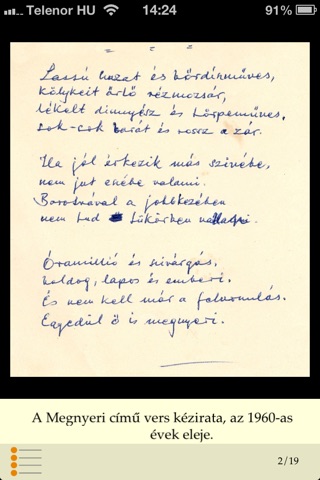 Telenor HU 14:24 91%
Lassú huzat és
kölykeit űrlő rézmozsár,
lékelt dinnyész és
sok-sok barát és rossz a zár.
Ha jól érkezik más szivébe,
nem jut eszébe valami.
Borotvával a jobbkezében
nem tud tükörben vallani.
Óramillió és szivárgás,
boldog, lapos és emberi.
És nem kell már a felvonulás.
Egyedül ő is megnyeri.
A Megnyeri című vers kézirata, az 1960-as
évek eleje.
2/19